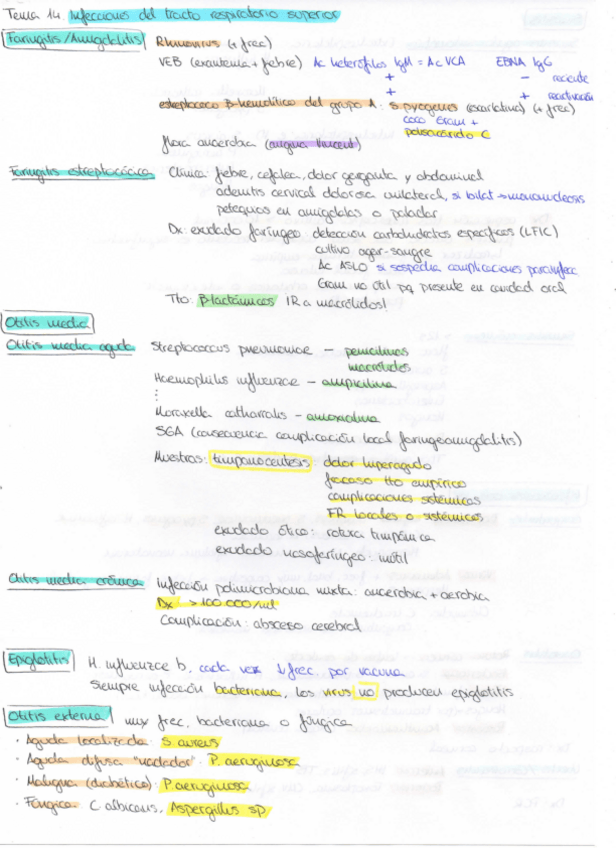 Tema 14. Infecciones del tracto respiratorio superior
Faringitis/Amigdalitis Rhinovirus (+ frec)
VEB (exantema + fiebre) Ac heterófilos IgM = Ac VCA EBNA IgG
+ - reciente
+ + reactivación
estreptococo β-hemolítico del grupo A: S. pyogenes (escarlatina) (+ frec)
coco Gram +
polisacárido C
flora anaerobia (angina Vincent)
Faringitis estreptocócica Clínica: fiebre, cefalea, dolor garganta y abdominal
adenitis cervical dolorosa unilateral, si bilat → mononucleosis
petequias en amígdalas o paladar
Dx: exudado faríngeo: detección carbohidratos específicos (LFIC)
cultivo agar-sangre
Ac ASLO si sospecha complicaciones parainfecc
Gram no útil pq presente en cavidad oral
Tto: β-lactámicos ¡R a macrólidos!
Otitis media
Otitis media aguda Streptococcus pneumoniae - penicilinas
macrólidos
Haemophilus influenzae - ampicilina
⋮
Moraxella catharralis - amoxicilina
SGA (consecuencia complicación local faringoamigdalitis)
Muestras: timpanocentesis: dolor hiperagudo
fracaso tto empírico
complicaciones sistémicas
FR locales o sistémicos
exudado ótico: rotura timpánica
exudado nasofaríngeo: inútil
Otitis media crónica infección polimicrobiana mixta: anaerobia + aerobia
Dx >100.000/ml
Complicación: absceso cerebral
Epiglotitis H. influenzae b, cada vez ↓ frec. por vacuna
Siempre infección bacteriana, los virus no producen epiglotitis
Otitis externa mux frec, bacteriana o fúngica
· Aguda localizada: S. aureus
· Aguda difusa "nadador": P. aeruginosa
· Maligna (diabético): P. aeruginosa
· Fúngica: C. albicans, Aspergillus sp